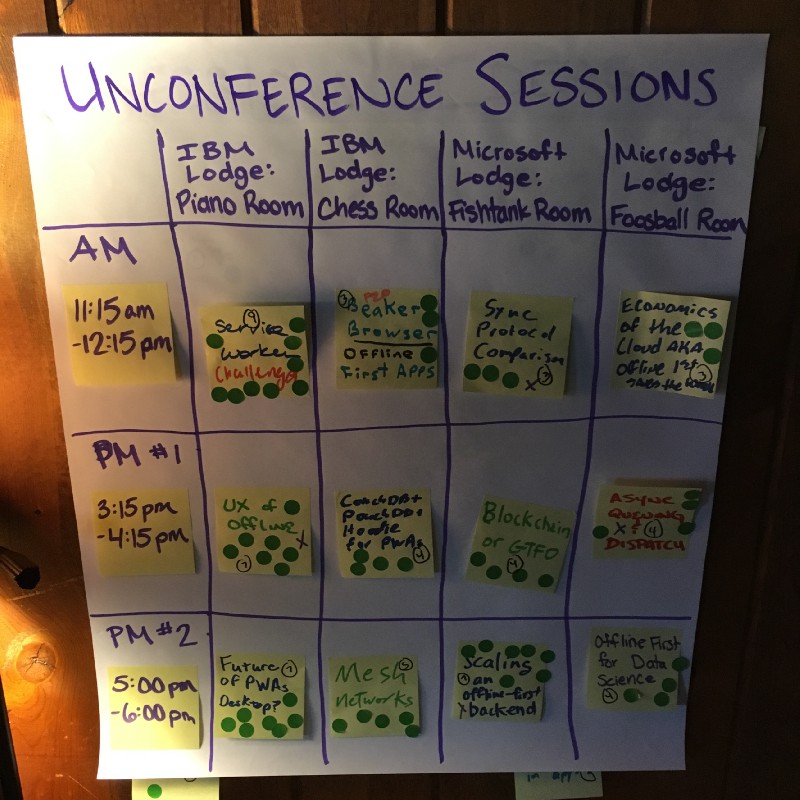 UNCONFERENCE SESSIONS
IBM
Lodge:
Piano Room
IBM
Lodge:
Chess Room
Microsoft
Lodge:
Fishtank Room
Microsoft
Lodge:
Foosball Room
AM
11:15 am
-12:15 pm
9
Service
Worker
Challenges
3 P2P
Beaker
Browser
OFFLINE
First APPS
Sync
Protocol
Comparison
X 3
Economics
of the
Cloud AKA
offline 1st
3
PM #1
3:15 pm
-4:15 pm
UX of
OFFLINE
X
7
CouchDB+
PouchDB+
Hoodie
for PWAs
4
Blockchain
or GTFO
4
ASYNC
QUEUING
X & 4
DISPATCH
PM #2
5:00 pm
-6:00 pm
Future 7
of PWAs
Desktop?
Mesh 5
networks
Scaling
an
offline-first
X backend
Offline First
for Data
Science
in app